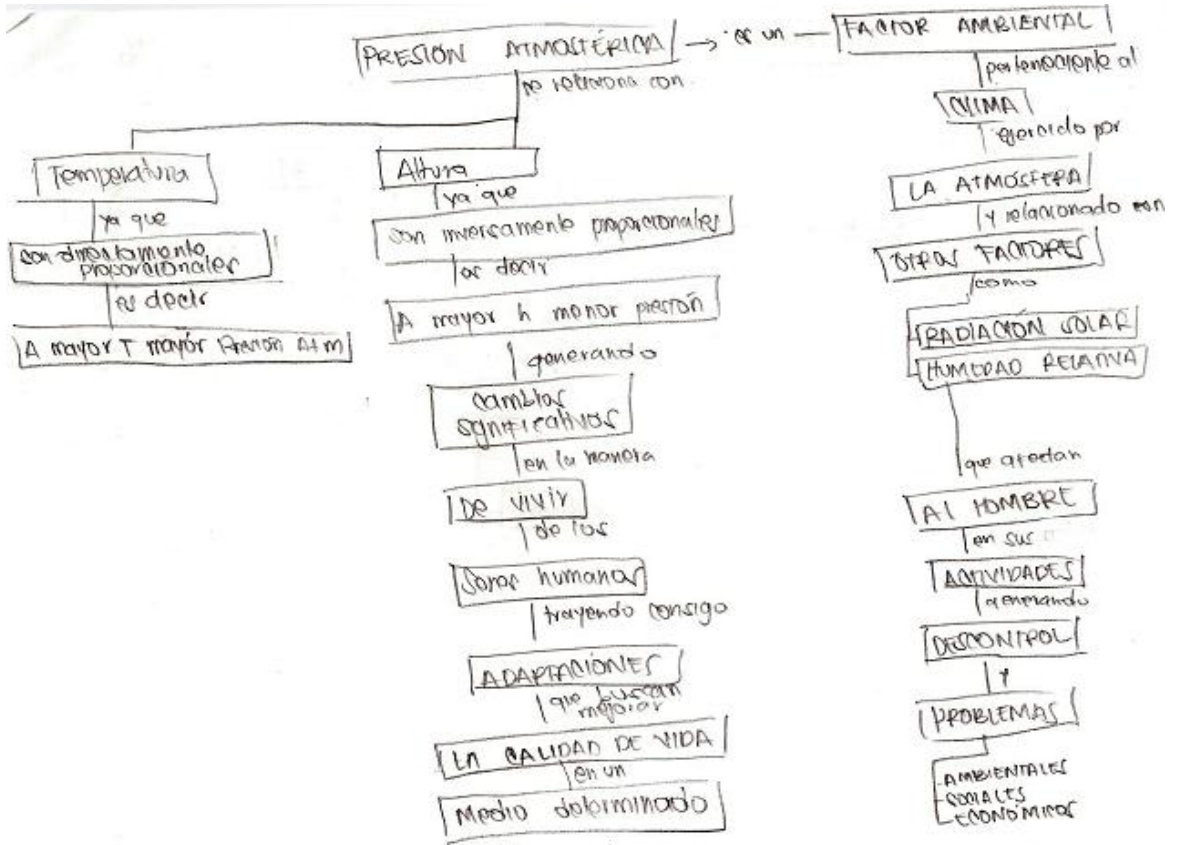 PRESIÓN ATMOSFÉRICA → es un — FACTOR AMBIENTAL
se relaciona con
Temperatura
ya que
son directamente
proporcionales
es decir
A mayor T mayor Presión Atm
Altura
ya que
son inversamente proporcionales
es decir
A mayor h menor presión
generando
cambios
significativos
en la manera
De vivir
de los
Seres humanos
trayendo consigo
ADAPTACIONES
que buscan
mejorar
LA CALIDAD DE VIDA
en un
Medio determinado
perteneciente al
CLIMA
ejercido por
LA ATMÓSFERA
y relacionado con
OTROS FACTORES
como
RADIACIÓN SOLAR
HUMEDAD RELATIVA
que afectan
Al HOMBRE
en sus
ACTIVIDADES
generando
DESCONTROL
Y
PROBLEMAS
- AMBIENTALES
- SOCIALES
- ECONÓMICOS